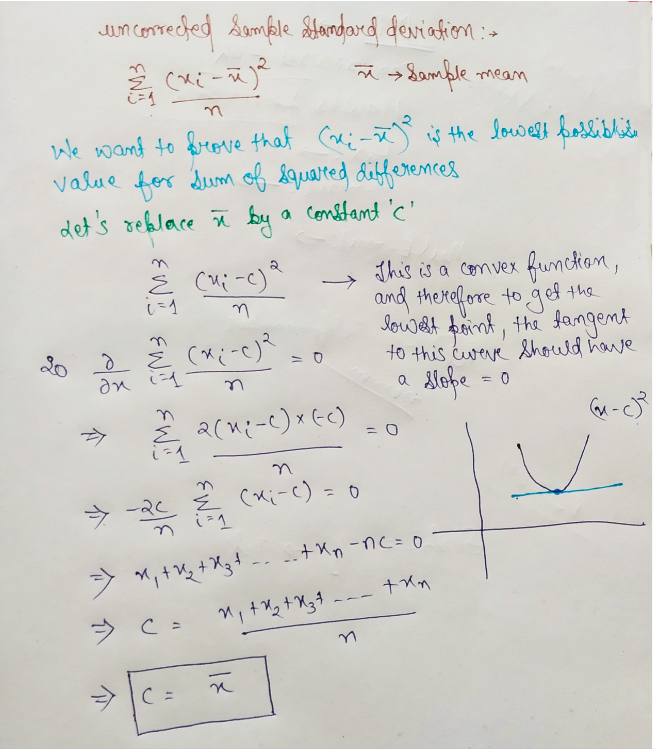 uncorrected Sample Standard deviation :→
n Σ i=1 (xi - x̄)² / n    x̄ → Sample mean
We want to prove that (xi - x̄)² is the lowest possible
value for sum of squared differences
Let's replace x̄ by a constant 'c'
n Σ i=1 (xi - c)² / n → This is a convex function,
and therefore to get the
lowest point, the tangent
to this curve should have
a slope = 0
So ∂/∂x n Σ i=1 (xi - c)² / n = 0
⇒ n Σ i=1 2(xi - c) × (-c) / n = 0
(x - c)²
⇒ -2c/n n Σ i=1 (xi - c) = 0
⇒ x₁ + x₂ + x₃ + - - - - + xn - nc = 0
⇒ c = x₁ + x₂ + x₃ + - - - + xn / n
⇒ c = x̄